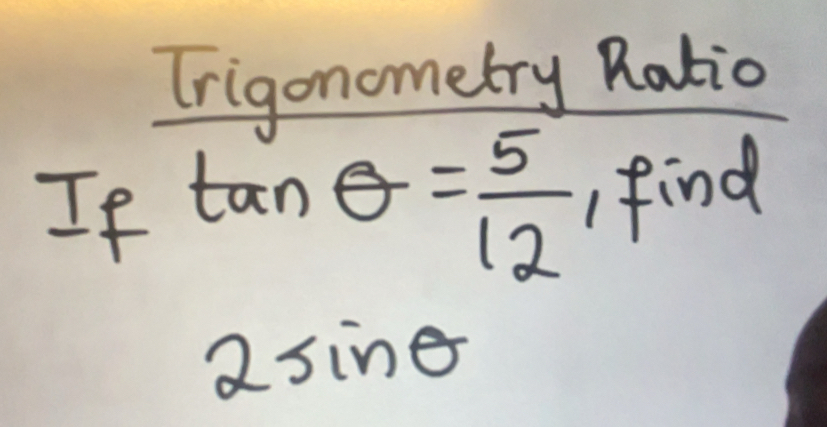 Trigonometry Ratio
If tan θ = 5/12, find
2 sin θ